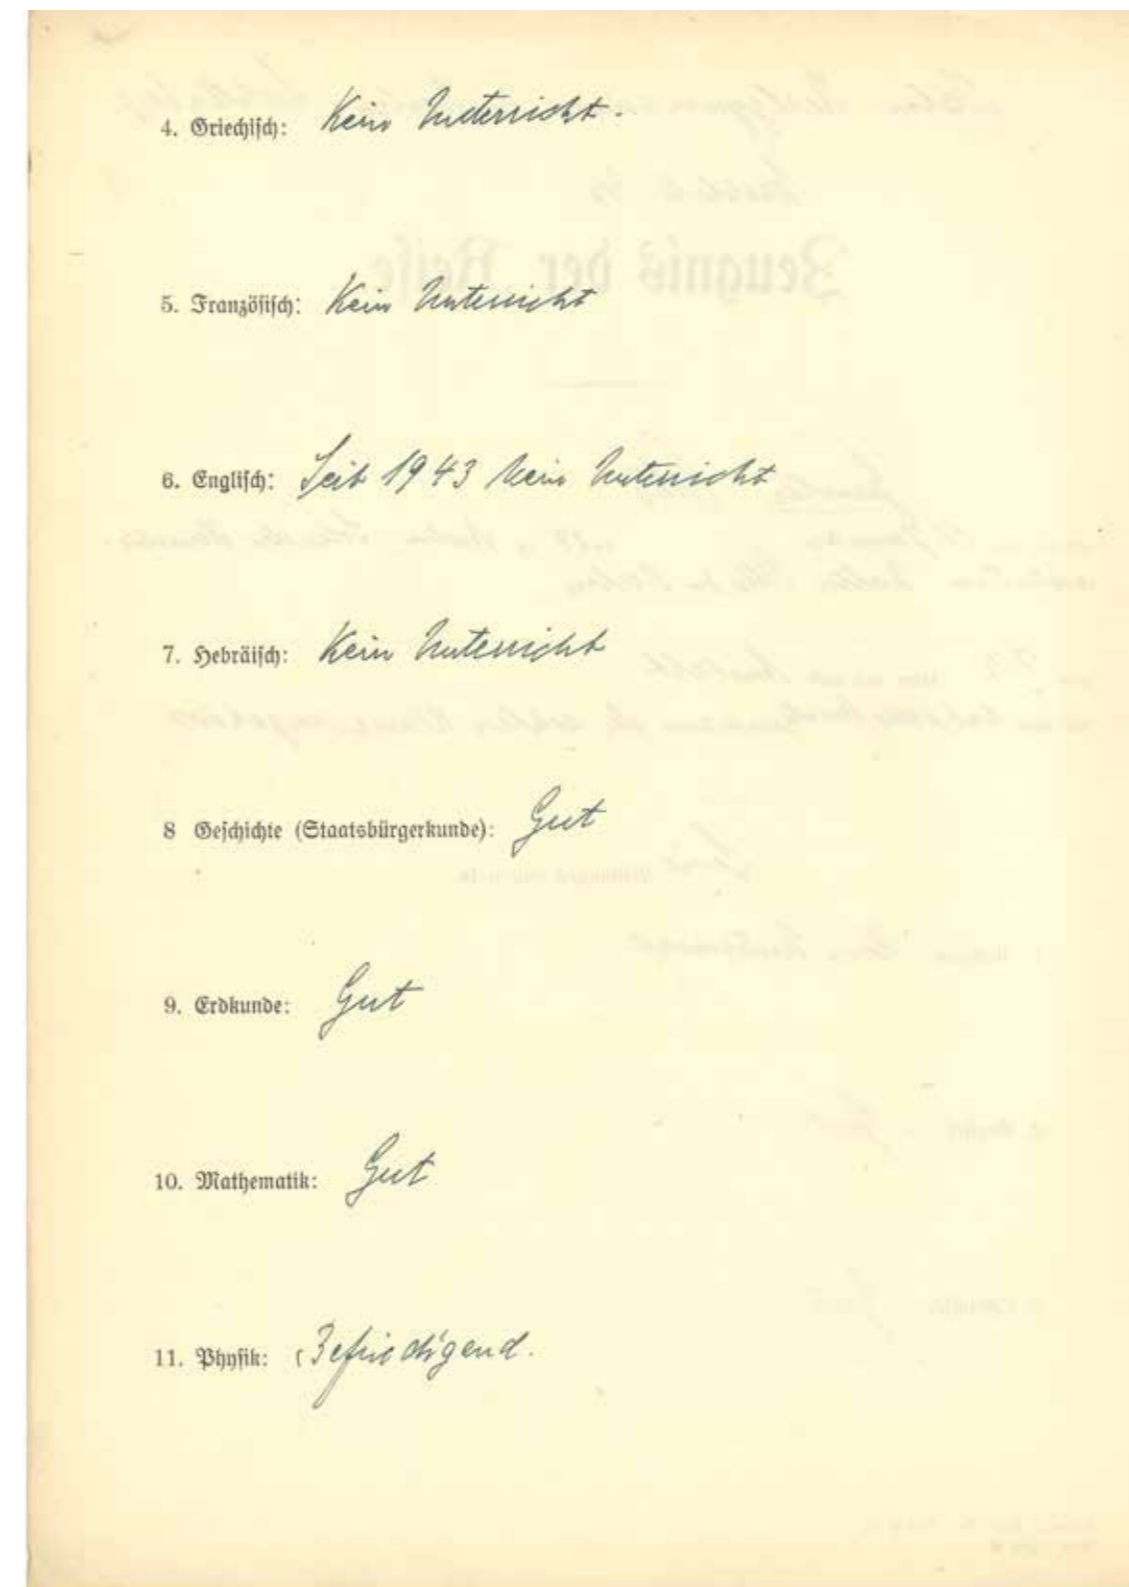 4. Griechisch: Kein Unterricht.
5. Französisch: Kein Unterricht
6. Englisch: Seit 1943 kein Unterricht
7. Hebräisch: Kein Unterricht
8 Geschichte (Staatsbürgerkunde): Gut
9. Erdkunde: Gut
10. Mathematik: Gut
11. Physik: Befriedigend.